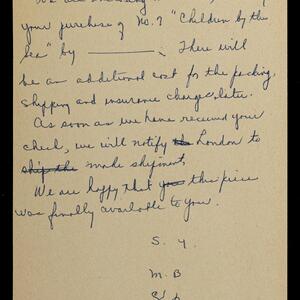 your purchase of No. 7 "Children by the
Sea" by ________. There will
be an additional cost for the packing,
shipping and insurance charges later.
As soon as we have received your
check, we will notify the London to
ship the make shipment.
We are happy that you this piece
was finally available to you.
S. Y.
M. B